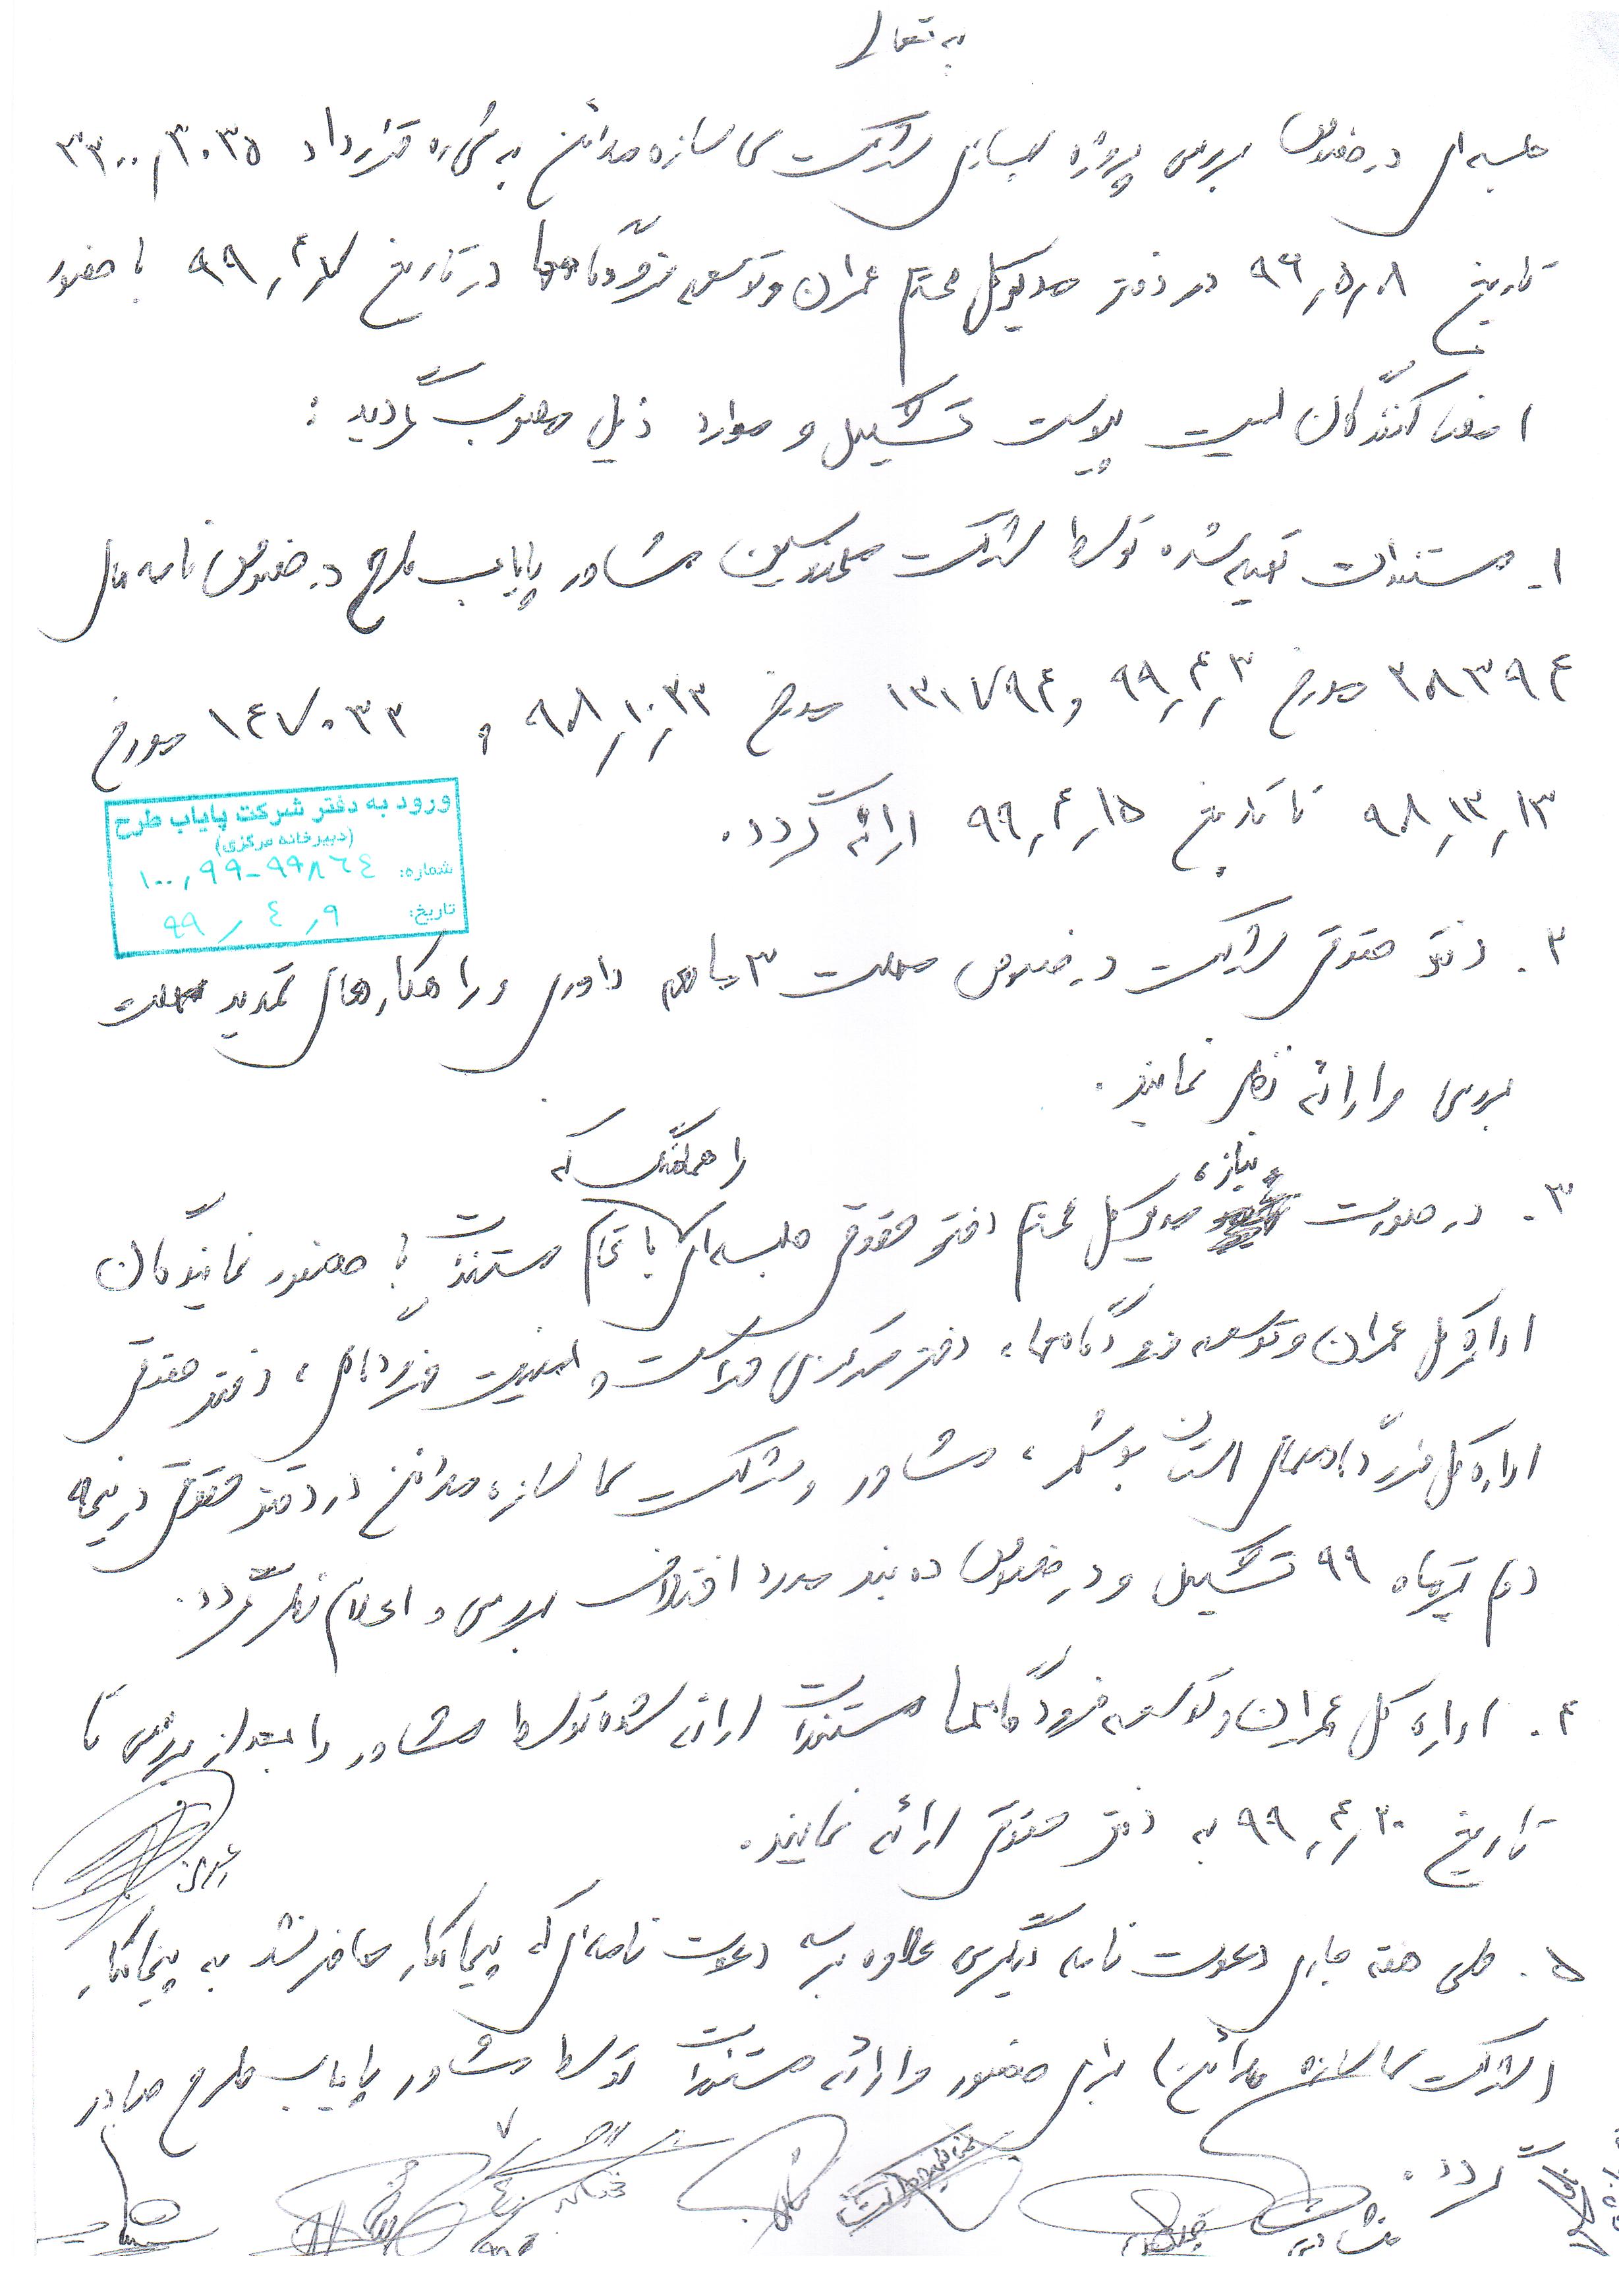 به تعالی
جلسه‌ای در خصوص بررسی پروژه شرکت نما سازه مدائن به شماره قرارداد ۳۳۰۰/۳۰۳۵
تاریخ ۹۶/۵/۰۸ در دفتر مدیرکل محترم عمران و توسعه فرودگاهها در تاریخ ۹۹/۴/ با حضور
امضاکنندگان لیست پیوست تشکیل و موارد ذیل مصوب گردید :
۱- مستندات تهیه شده توسط شرکت مهندسین مشاور پایاب طرح در خصوص نامه های
۳۸۳۹۴ مورخ ۹۹/۴/۳ و ۱۳۱۷۹۴ مورخ ۹۸/۱۰/۲۳ و ۱۴۷۰۳۳ مورخ
۹۸/۱۲/۱۳ تا تاریخ ۹۹/۴/۱۵ ارائه گردد.
ورود به دفتر شرکت پایاب طرح
(دبیرخانه مرکزی)
شماره: ۱۰۰/۹۹-۹۹۸۶۴
تاریخ: ۹۹/۴/۹
۲. دفتر حقوقی شرکت در خصوص مهلت ۳ ماهه داوری و راهکارهای تمدید مهلت
بررسی و ارائه نظر نمایند.
را هماهنگ که
۳. در صورت نیاز، مدیرکل محترم دفتر حقوقی جلسه‌ای با تمام مستندات با حضور نمایندگان
اداره کل عمران و توسعه فرودگاهها، دفتر مرکزی حراست و امنیت فرودگاهی، دفتر حقوقی
اداره کل فرودگاههای استان بوشهر، مشاور و شرکت نما سازه مدائن در دفتر حقوقی در نیمه
دوم تیرماه ۹۹ تشکیل و در خصوص ده بند مورد اختلاف بررسی و اعلام نظر گردد.
۴. اداره کل عمران و توسعه فرودگاهها مستندات ارائه شده توسط مشاور را بعد از بررسی تا
تاریخ ۹۹/۴/۲۰ به دفتر حقوقی ارائه نمایند.
۵. طی هفته جاری دعوت نامه دیگری علاوه بر سه دعوت نامه‌ای که پیمانکار حاضر نشد به پیمانکار
(شرکت نما سازه مدائن) برای حضور و ارائه مستندات توسط مشاور پایاب طرح صادر
گردد.